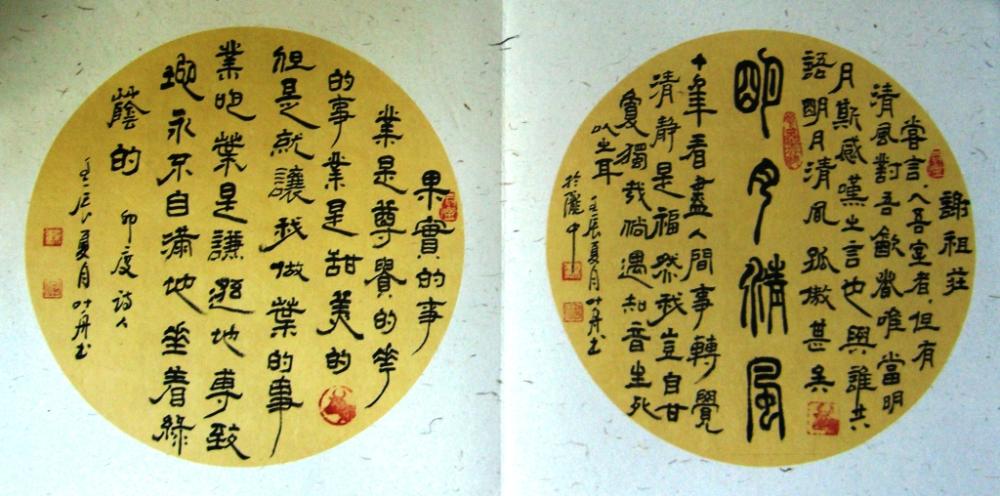 謝祖莊
嘗言、入吾室者,但有
清風對吾飲者唯當明
月斯感嘆之言也與誰共
語明月清風孤傲甚矣
明月清風
十年看盡人間事轉覺
清靜是福然我豈自甘
獨哉倘遇知音生死
以之耳
壬辰夏月叶丹书
於隴中
果實的事
業是尊貴的花
的事業是甜美的
但是就讓我做葉的事
業吧葉是謙遜地專致
地永不自滿地垂着綠
蔭的
印度詩人
壬辰夏月叶丹书